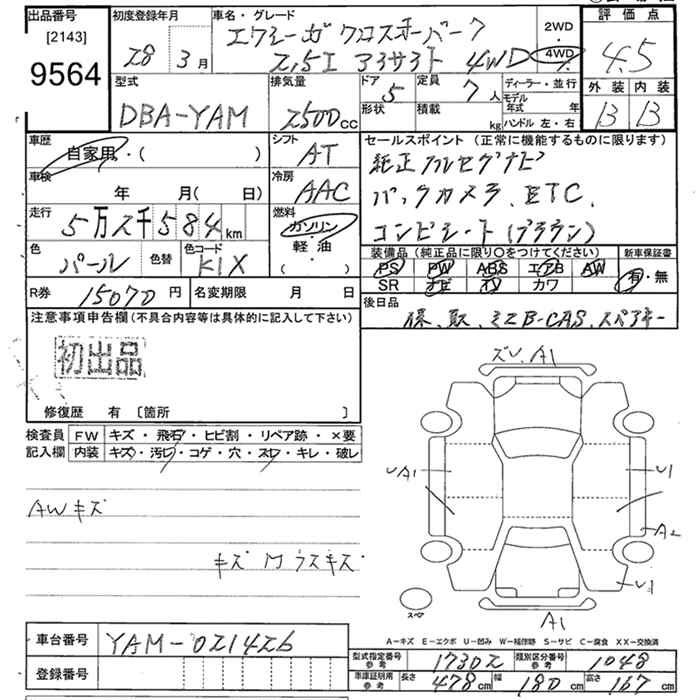 出品番号
[2143]
9564
初度登録年月
28年 3月
車名・グレード
エクシーガ クロスオーバー7
2.5i アイサイト 4WD
2WD
4WD
評価点
4.5
外装 内装
B B
型式
DBA-YAM
排気量
2500cc
ドア 5
形状
定員 7人
積載 kg
ディーラー・並行
モデル年式 年
ハンドル 左・右
車歴
自家用・( )
シフト
AT
車検
年 月( 日)
冷房
AAC
走行
5万2千584km
燃料
ガソリン
軽・油
( )
色
パール
色替
色コード
K1X
R券 15070円
名変期限 月 日
セールスポイント(正常に機能するものに限ります)
純正フルセグナビ
バックカメラ、ETC、
コンビシート(ブラウン)
装備品(純正品に限り○をつけてください)
PS PW ABS エアB AW
SR ナビ TV カワ
新車保証書
有・無
後日品
保、取、ミニB-CAS、スペアキー
注意事項申告欄(不具合内容等は具体的に記入して下さい)
初出品
修復歴 有 [箇所 ]
検査員記入欄
FW キズ・飛石・ヒビ割・リペア跡・×要
内装 キズ・汚レ・コゲ・穴・スレ・キレ・破レ
AWキズ
キズ M ウスキズ
ズレ、A1
A1
U1
A2
U1
スペア
A1
A-キズ E-エクボ U-凹み W-補修跡 S-サビ C-腐食 XX-交換済
車台番号 YAM-021426
登録番号
型式指定番号 参考 17302
類別区分番号 参考 1048
車庫証明用 参考 長さ 478cm 幅 180cm 高さ 167cm